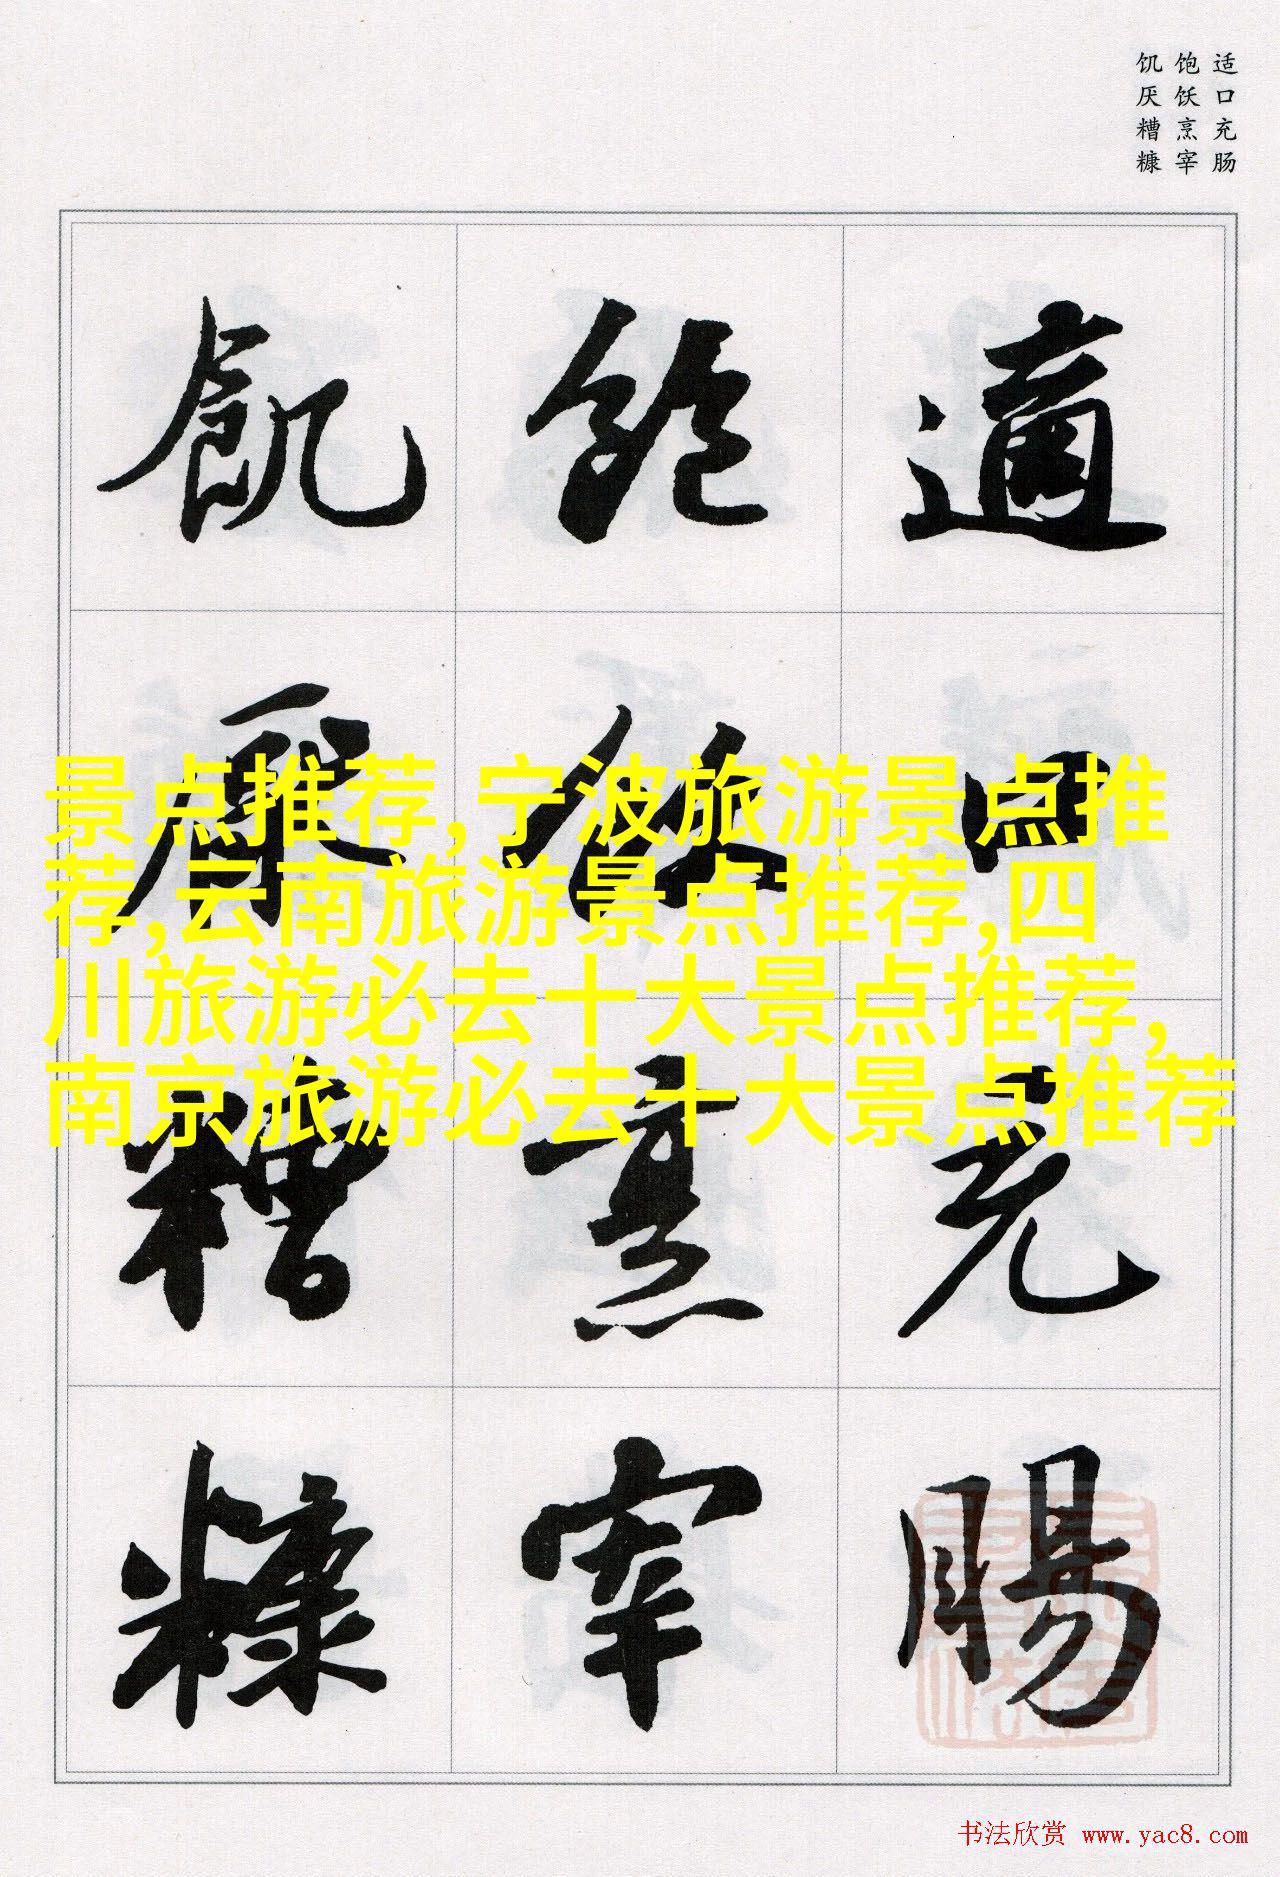 适口充肠
饱饫烹宰
饥厌糟糠
適口充腸
飽飫烹宰
飢厭糟糠
景点推荐,宁波旅游景点推
荐,云南旅游景点推荐,四
川旅游必去十大景点推荐,
南京旅游必去十大景点推荐
书法欣赏 www.yac8.com